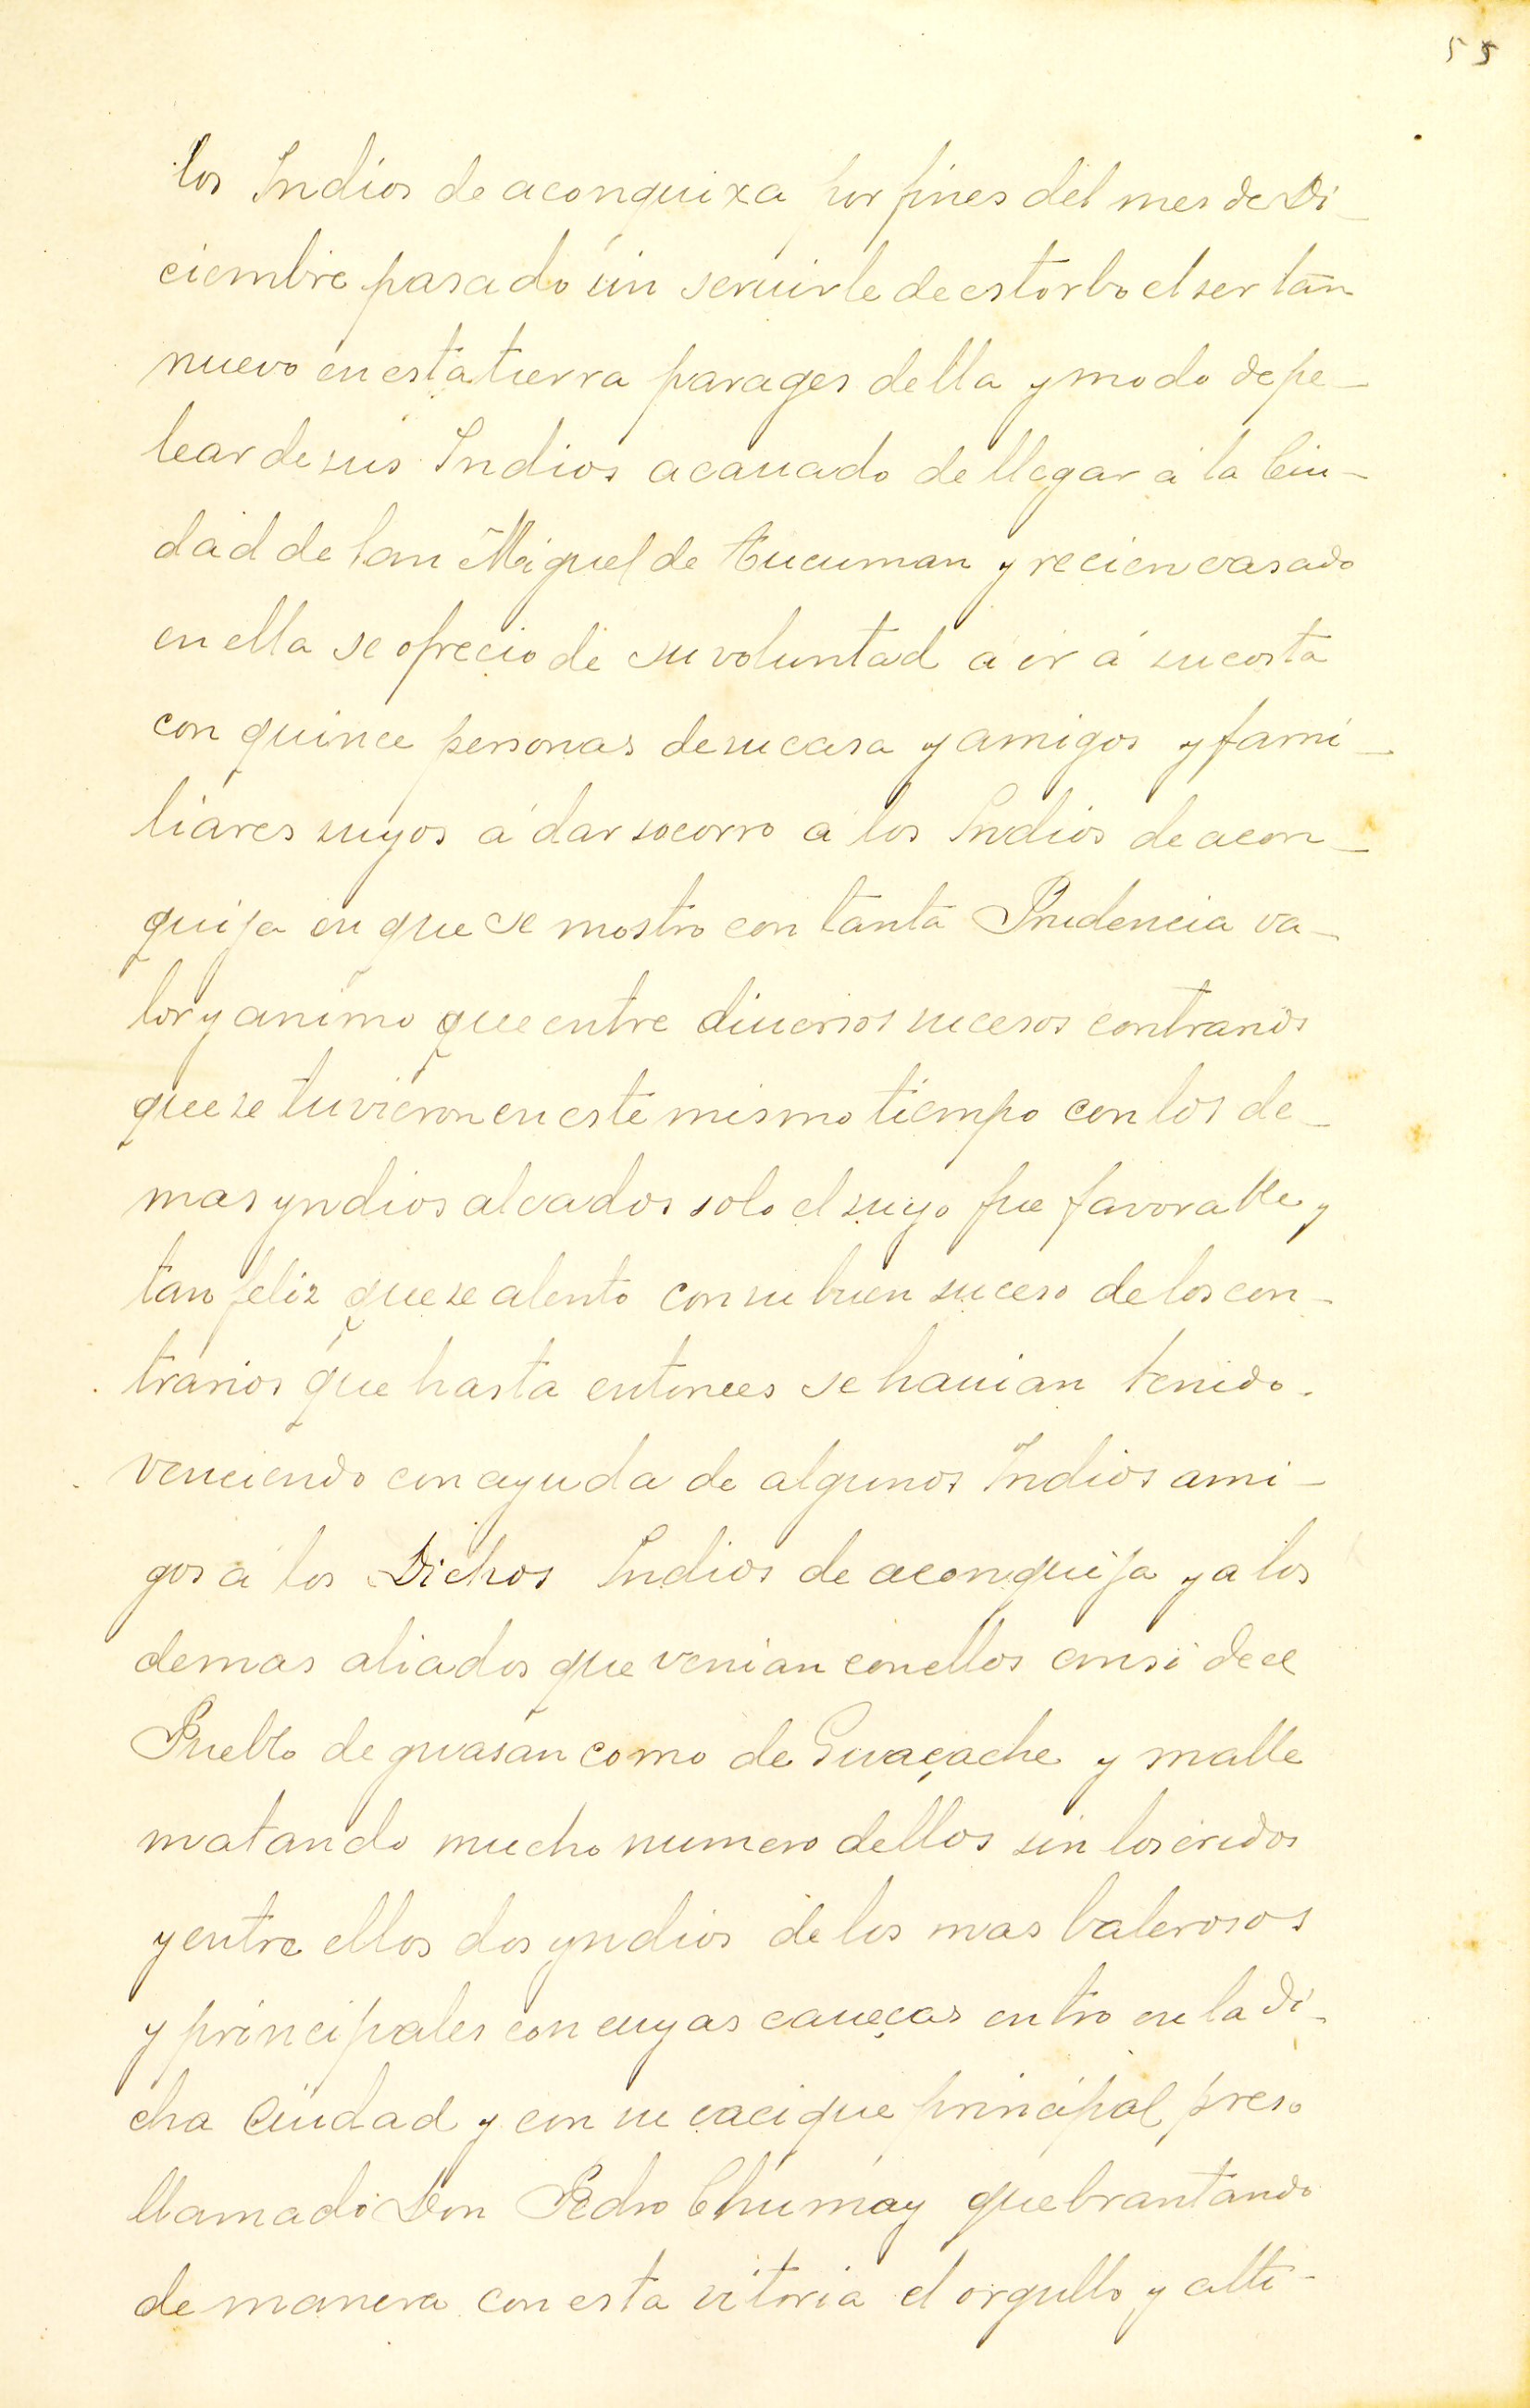 55
los Indios de aconquixa por fines del mes de Di-
ciembre pasado sin seruirle de estorbo el ser tan
nuevo en esta tierra parages della y modo de pe-
lear de sus Indios acauado de llegar á la Ciu-
dad de San Miguel de Tucuman y recien casado
en ella se ofrecio de su voluntad á ir á su costa
con quince personas de su casa y amigos y fami-
liares suyos á dar socorro a los Indios de acon-
quija en que se mostro con tanta Prudencia va-
lor y animo que entre diuersos sucesos contrarios
que se tuvieron en este mismo tiempo con los de-
mas yndios alcados solo el suyo fue favorable y
tan feliz que se alento con su buen suceso de los con-
trarios que hasta entonces se hauian tenido.
venciendo con ayuda de algunos Indios ami-
gos á los Dichos Indios de aconquija y a los
demas aliados que venian con ellos ansi de el
Pueblo de guasan como de Guaçache y malle
matando mucho numero dellos sin los eridos
y entre ellos dos yndios de los mas balerosos
y principales con cuyas caueças entro en la di-
cha Ciudad y con su cacique principal preso
llamado Don Pedro Chumay quebrantando
de manera con esta vitoria el orgullo y alti-